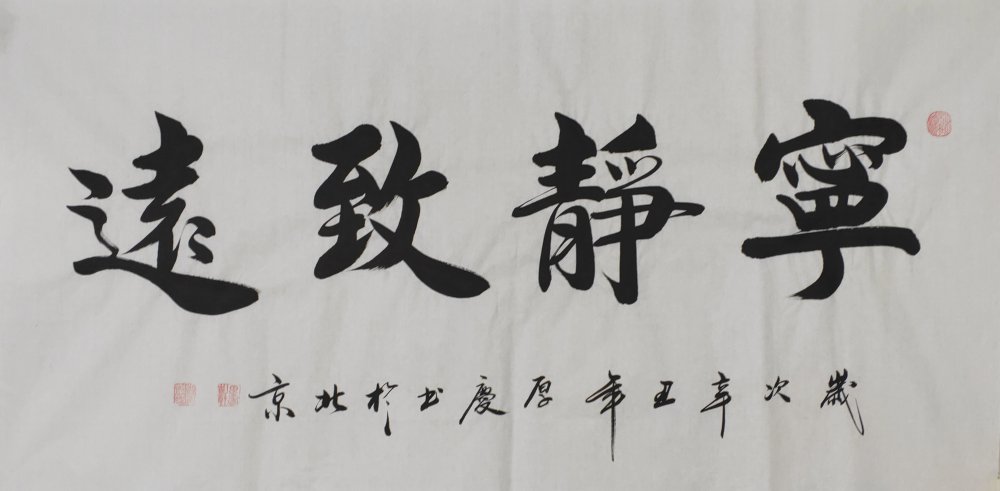 寧靜致遠
歲次辛丑年厚慶书於北京